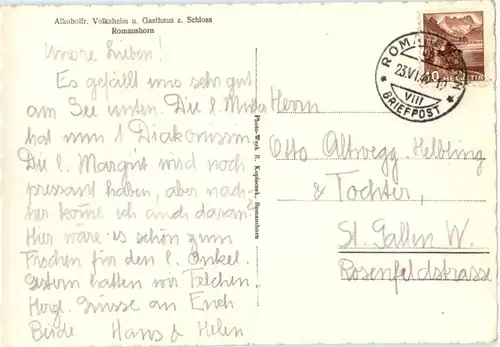 Alkoholfr. Volksheim u. Gasthaus z. Schloss
Romanshorn
Meine Lieben!
Es gefällt uns sehr gut
am See unten. Die l. Mutter
hat nun 1 Diakonissin.
Die l. Margrit wird noch
pressant haben, aber nach-
her kome ich auch daran.
Hier wäre es schön zum
Fischen für den l. Onkel.
Gestern hatten wir Felchen.
Herzl. Grüsse an Euch
Beide Hans & Helen
Photo-Werk R. Kopieczek, Romanshorn
ROMANSHORN
23.VI.40
VIII
BRIEFPOST
HELVETIA
Herrn
Otto Altwegg-Helbling
& Tochter,
St. Gallen W.
Rosenfeldstrasse